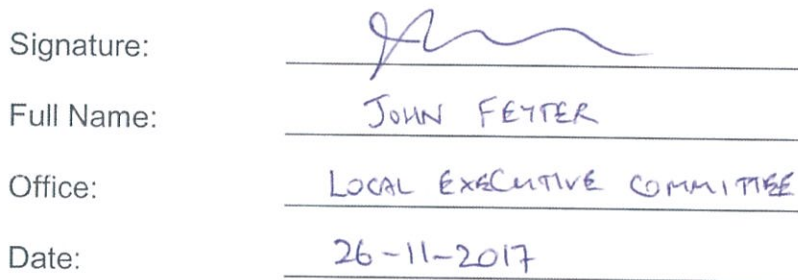 Signature:
Full Name: JOHN FEYTER
Office: LOCAL EXECUTIVE COMMITTEE
Date: 26-11-2017